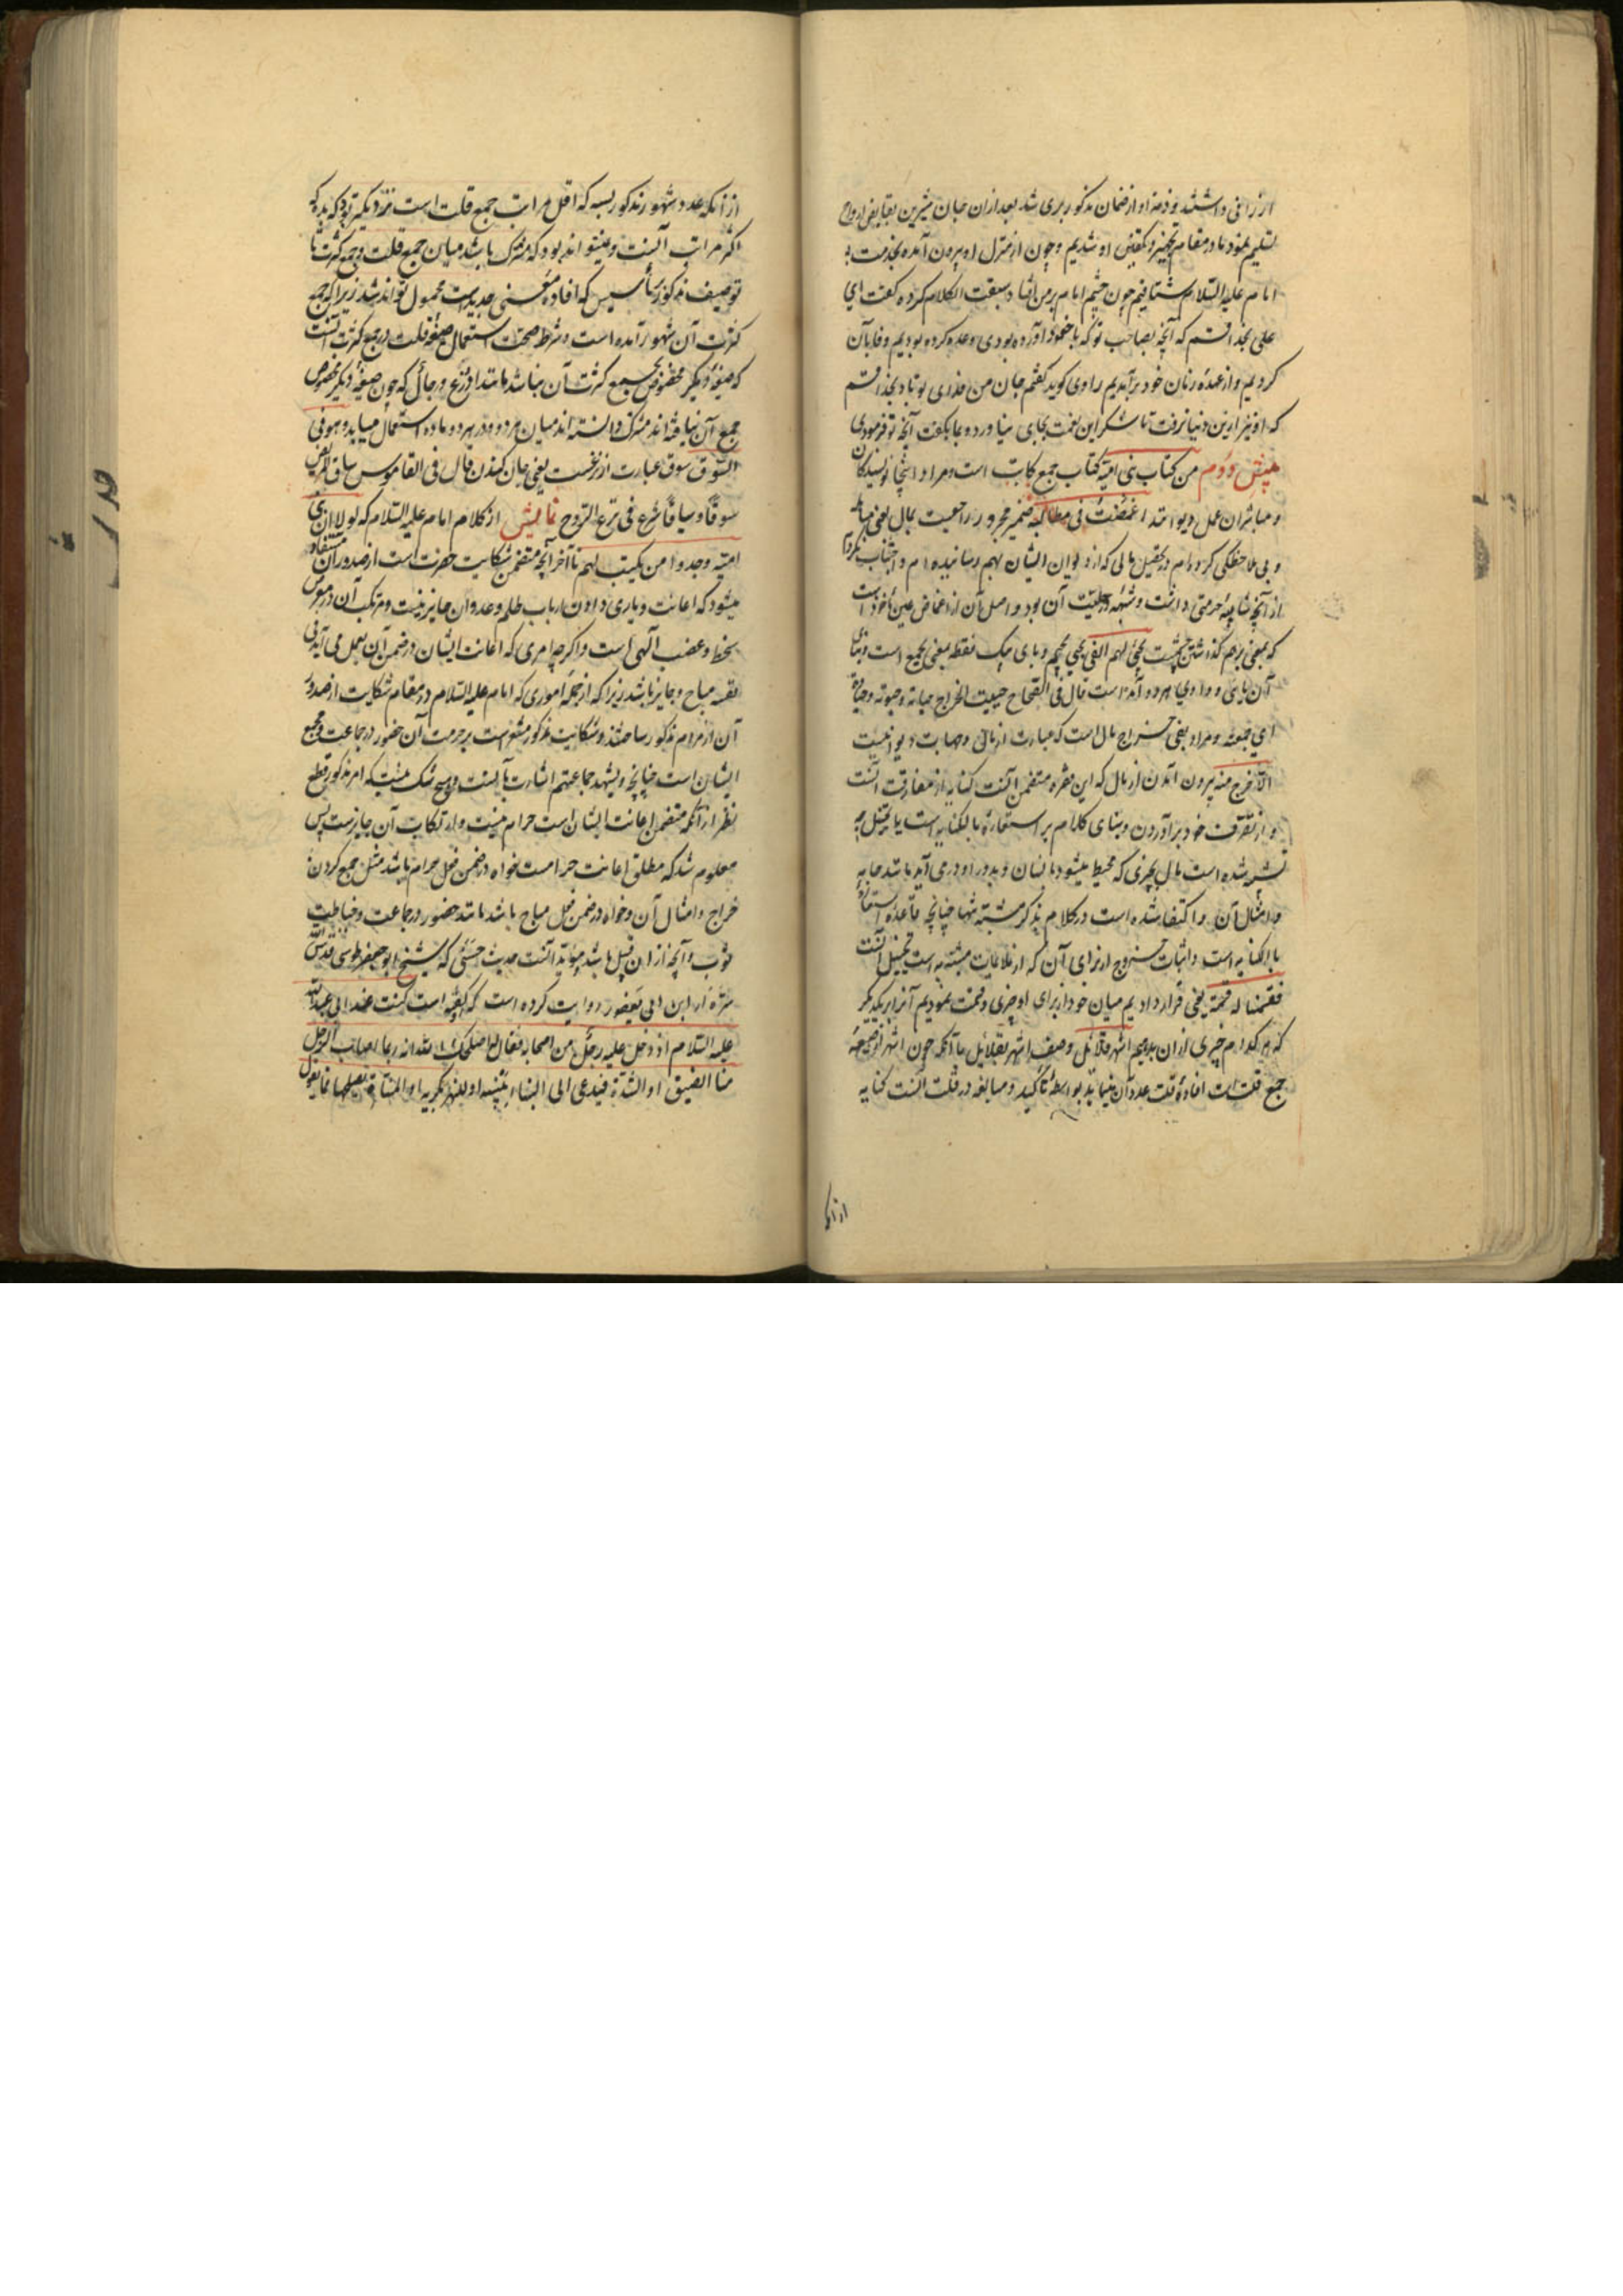 ارزانی داشتند و ذمهٔ او از ضمان مذکور بری شد بعد از ان جان شیرین بقابض ارواح
تسلیم نمود ما در مقام تجهیز و تکفین او شدیم و چون از منزل او بیرون آمده بخدمت
امام علیه السلام شتافتیم چون چشم امام بر من افتاد سبقت الکلام کرده گفت ای
علی بخدا قسم که آنچه بصاحب تو که با خود آورده بودی وعده کرده بودیم وفا بآن
کردیم و از عهدهٔ زبان خود برآمدیم راوی گوید گفتم جان من فدای تو باد بخدا قسم
که او نیز ازین دنیا نرفت تا شکر این نعمت بجای نیاورد و بما بگفت آنچه تو فرمودی
بینش دوم من کتاب بنی امیة کتاب جمع کاتب است و مراد اینجا نویسندگان
و مباشران عمل دیوانند اغمضت فی مطالبه ضمیر مجرور راجعست بمال یعنی
و بی ملاحظگی کرده‌ام در تحصیل مالی که از دیوان ایشان بهم رسانیده ام و اجتناب نکرده‌ام
از آنچه شایبهٔ حرمتی داشت و شبهه در حلیت آن بود و اصل آن از اغماض عین ماخوذ است
که بمعنی برهم گذاشتن چشمست یجبی لهم الفی یجبی بجیم و بای یک نقطه بمعنی یجمع است و بنای
آن یایی و واوی هر دو آمده است قال فی الصحاح جبیت الخراج جبایة و جبوته جباوة
ای جمعته و مراد بفی خراج مال است که عبارت از مالی
الا خرج منه بیرون آمدن از مال که این فقره متضمن آنست کنایه از مفارقت آنست
و از تصرف خود برآوردن و بنای کلام بر استعارهٔ بالکنایه است یا تمثیل چه
تشبیه شده است مال بچیزی که محیط میشود بانسان و بدور او درمی آید مانند جامه
و امثال آن و اکتفا شده است در کلام بذکر مشبه تنها چنانچه قاعدهٔ استعارهٔ
بالکنایه است و اثبات خروج از برای آن که از ملایمات مشبه به است تخییل آنست
فقسمنا له قسمة یعنی قرار دادیم میان خود از برای او چیزی و قسمت نمودیم آنرا بر یکدیگر
که هر کدام چیزی از ان بدهیم اشهر قلائل وصف اشهر بقلائل با آنکه چون اشهر از صیغهٔ
جمع قلت است افادهٔ قلت عدد آن مینماید بواسطهٔ تأکید و مبالغه در قلت آنست کنایه
از آنکه
از آنکه عدد شهور مذکور بسه که اقل مراتب جمع قلت است نزدیکتر بود که بده که
اکثر مراتب آنست و میتواند بود که مشترک باشد میان جمع قلت و جمع کثرت تا
توصیف مذکور بتأسیس که افادهٔ معنی جدیدست محمول تواند شد زیرا که جمع
کثرت آن شهور آمده است و شرط صحت استعمال صیغهٔ قلت در جمع کثرت آنست
که صیغهٔ دیگر مخصوص بجمع کثرت آن نباشد مانند اذرع و رجال که چون صیغهٔ دیگر مخصوص
جمع آن نیافته اند مشترک دانسته اند میان هر دو و در هر دو ماده استعمال مییابد و هو فی
السوق سوق عبارت از نزعست یعنی جان کندن قال فی القاموس ساق المریض
سوقاً و سیاقاً شرع فی نزع الروح نمایش از کلام امام علیه السلام که لولا ان بنی
امیة وجدوا من یکتب لهم تا آخر آنچه متضمن شکایت حضرت است از صدور آن مستفاد
میشود که اعانت و یاری دادن ارباب ظلم و عدوان جایز نیست و مرتکب آن در معرض
سخط و غضب الهی است و اگر چه امری که اعانت ایشان در ضمن آن بعمل می آید فی
نفسه مباح و جایز باشد زیرا که از جملهٔ اموری که امام علیه السلام در مقام شکایت از صدور
آن از مردم مذکور ساختند و شکایت مذکور مشعر است بر حرمت آن حضور در جماعت و مجمع
ایشان است چنانچه و یشهد جماعتهم اشارت بآنست و هیچ شک نیست که امر مذکور قطع
نظر از آنکه متضمن اعانت ایشان است حرام نیست و ارتکاب آن جایزست پس
معلوم شد که مطلق اعانت حرامست خواه در ضمن فعل حرام باشد مثل جمع کردن
خراج و امثال آن و خواه در ضمن فعل مباح باشد مانند حضور در جماعت و خیاطت
ثوب و آنچه از ان قبیل باشد مؤید آنست حدیث حسنی که شیخ ابو جعفر طوسی قدس الله
سره از ابن ابی یعفور روایت کرده است که گفته است کنت عند ابی عبدالله
علیه السلام اذ دخل علیه رجل من اصحابه فقال له اصلحک الله انه ربما اصاب الرجل
منا الضیق او الشدة فیدعی الی البناء یبنیه او النهر یکریه او المسناة یصلحها فما تقول